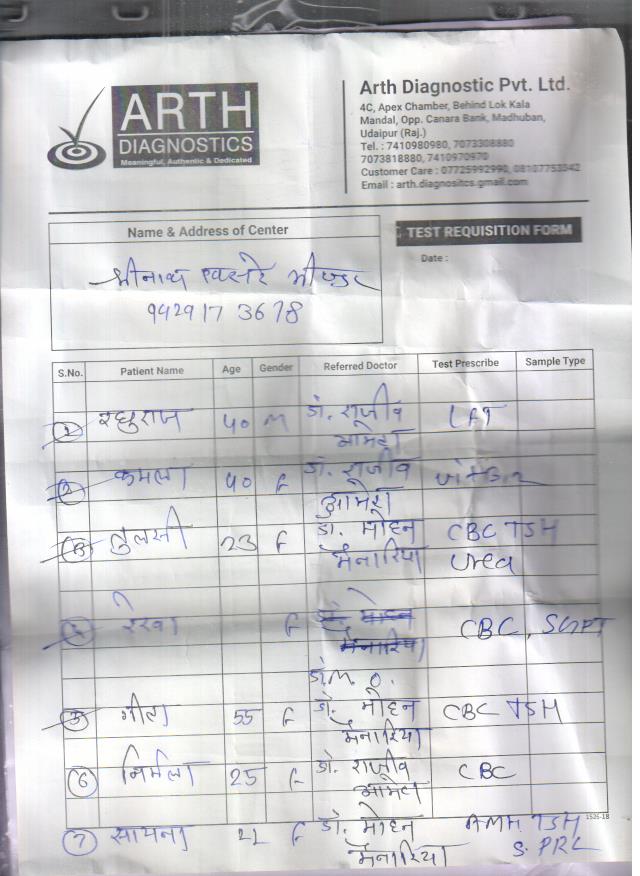 ARTH
DIAGNOSTICS
Meaningful, Authentic & Dedicated
Arth Diagnostic Pvt. Ltd.
4C, Apex Chamber, Behind Lok Kala
Mandal, Opp. Canara Bank, Madhuban,
Udaipur (Raj.)
Tel. : 7410980980, 7073308880
7073818880, 7410970970
Customer Care : 07725992990,
Email : arth.diagnositcs.gmail.com
Name & Address of Center
TEST REQUISITION FORM
Date :
श्रीनाथ एक्सरे
942917 3678
S.No. Patient Name Age Gender Referred Doctor Test Prescribe Sample Type
1 रघुराज 40 M डॉ. राजीव LFT
आमेटा
2 कमला 40 F डॉ. राजीव Vit B12
आमेटा
3 तुलसी 23 F डॉ. मोहन CBC TSH
मैनारिया Urea
4 रेखा F डॉ. मोहन CBC, SGPT
मैनारिया
डॉ. M. O.
5 55 F डॉ. मोहन CBC TSH
मैनारिया
6 निर्मला 25 F डॉ. राजीव CBC
आमेटा
7 सायना F डॉ. मोहन AMH TSH
मैनारिया S. PRL
1526-18